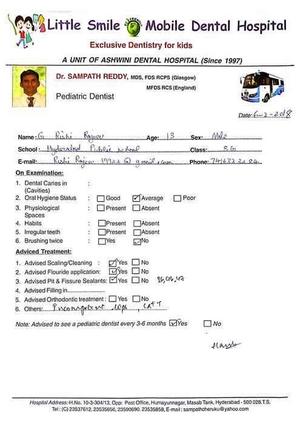 Little Smile Mobile Dental Hospital
Exclusive Dentistry for kids
A UNIT OF ASHWINI DENTAL HOSPITAL (Since 1997)
Dr. SAMPATH REDDY, MDS, FDS RCPS (Glasgow)
MFDS RCS (England)
Pediatric Dentist
Date: 6-2-2018
Name: G Rishi Age: 13 Sex: Male
School: Hyderabad Public school Class: 8G
E-mail: Phone:
On Examination:
1. Dental Caries in (Cavities) :
2. Oral Hygiene Status : Good Average Poor
3. Physiological Spaces : Present Absent
4. Habits : Present Absent
5. Irregular teeth : Present Absent
6. Brushing twice : Yes No
Adviced Treatment:
1. Advised Scaling/Cleaning : Yes No
2. Advised Flouride application: Yes No
3. Advised Pit & Fissure Sealants: Yes No
4. Advised Filling in
5. Advised Orthodontic treatment: Yes No
6. Others: Incompetent lips,
Note: Advised to see a pediatric dentist every 3-6 months Yes No
Hospital Address: H.No. 10-3-304/13, Opp: Post Office, Humayunnagar, Masab Tank, Hyderabad - 500 028.T.S.
Tel: (C) 23537612, 23535656, 23590690, 23535858, E-mail: sampathcheruku@yahoo.com